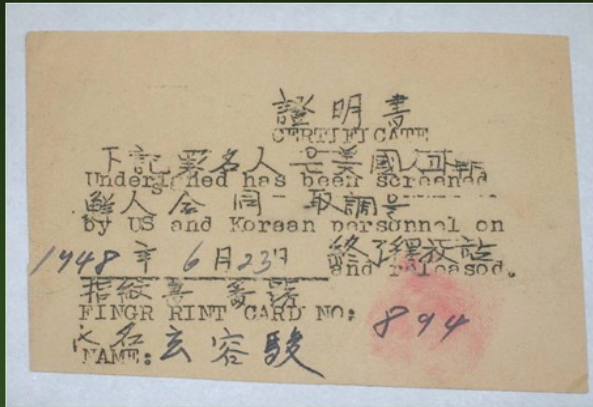 證明書
CERTIFICATE
下記署名人은美國人及朝
Undersigned has been screened
鮮人合同 取調를
by US and Korean personnel on
1948年 6月23日 終了釋放
and released.
指紋番
FINGR RINT CARD NO: 894
氏名
NAME: 玄容駿